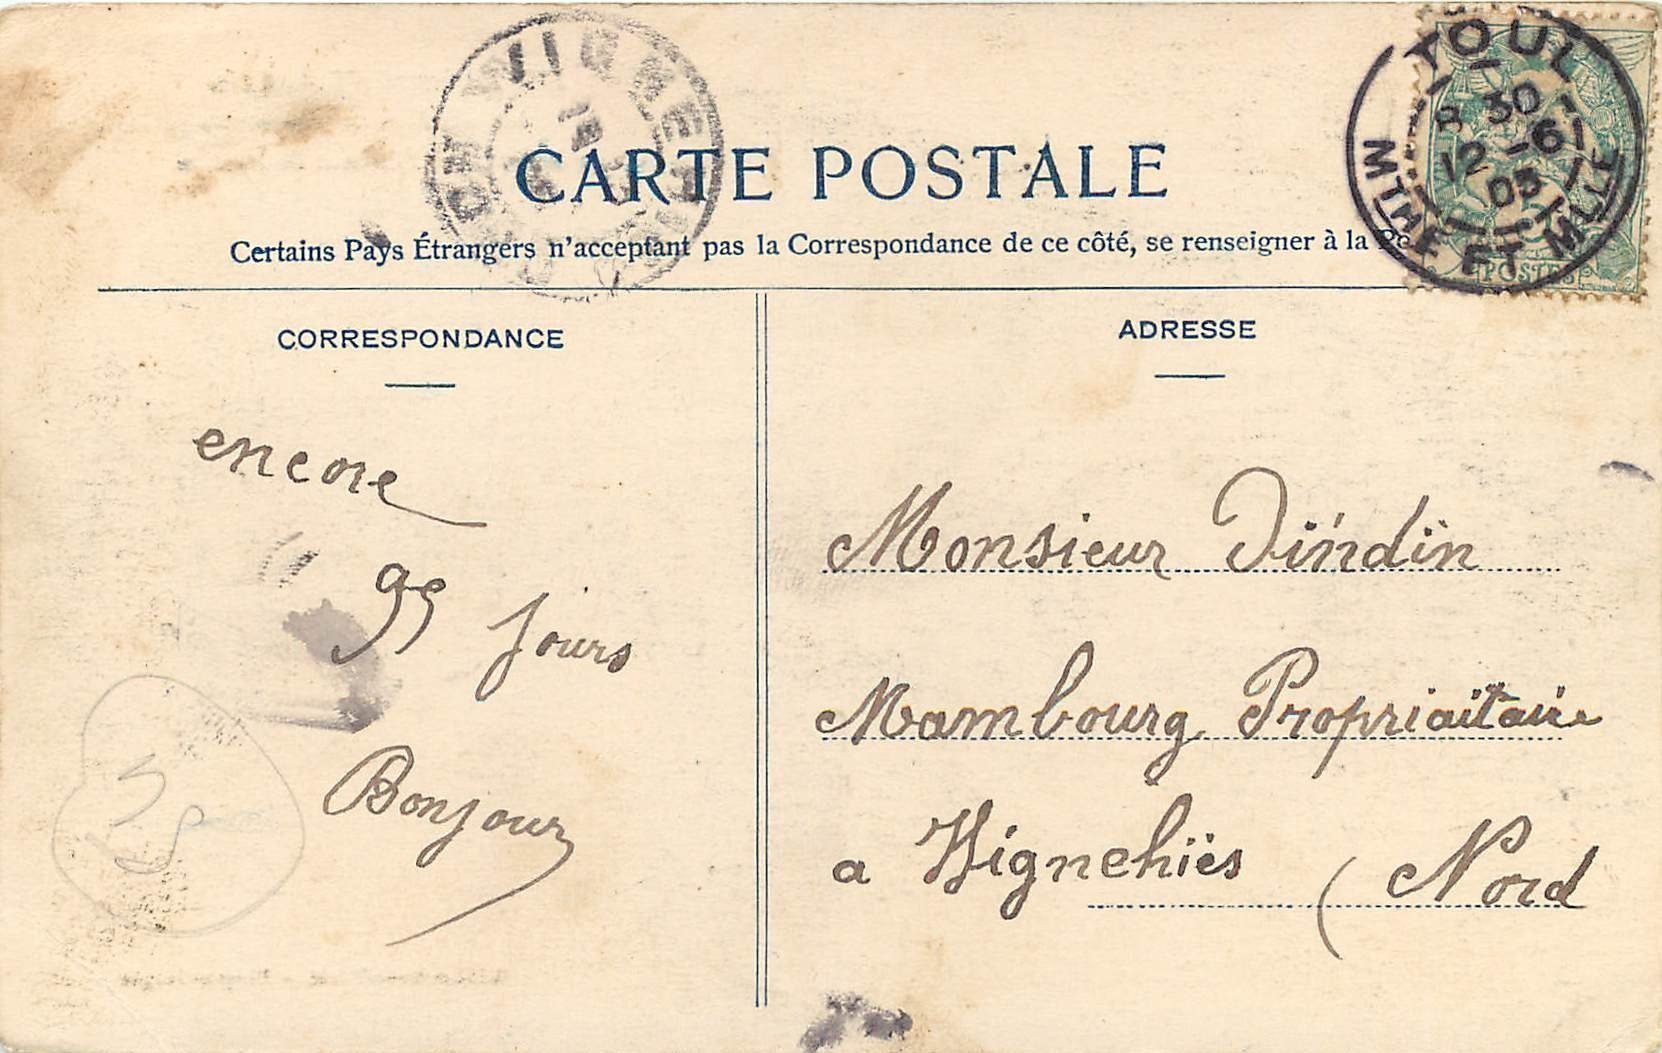 CARTE POSTALE
Certains Pays Étrangers n'acceptant pas la Correspondance de ce côté, se renseigner à la
TOUL
8 30
12 -6
05
MTHE ET MLLE
POSTES
CORRESPONDANCE
encore
95 Jours
Bonjour
ADRESSE
Monsieur Dindin
Mambourg Propriaitaire
a Wignehiës
( Nord